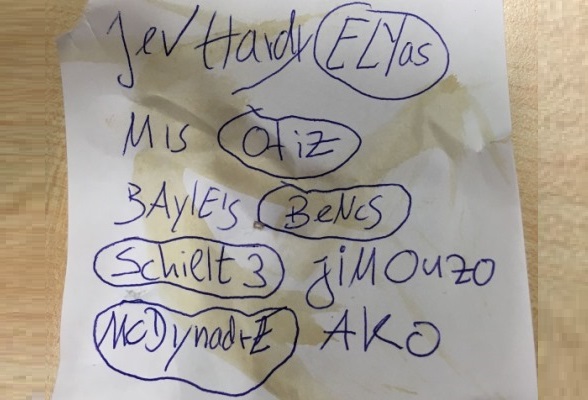 Jev Hardy ELYas
MIS OtiZ
BAylE's BeNcs
Schielt 3 jiMOuzo
McDynadrE AKO